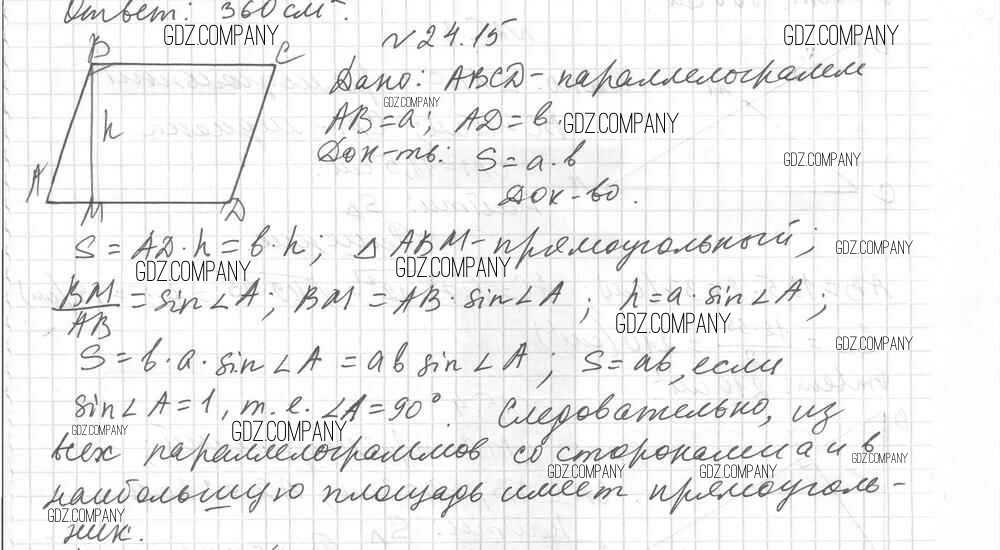 Ответ: 360 см².
GDZ.COMPANY
GDZ.COMPANY
№ 24.15
B C
Дано: ABCD - параллелограмм
GDZ.COMPANY
AB = a; AD = b. GDZ.COMPANY
h
Док-ть: S = a·b GDZ.COMPANY
A
Док-во.
M D
S = AD·h = b·h; Δ ABM - прямоугольный; GDZ.COMPANY
GDZ.COMPANY GDZ.COMPANY
BM/AB = sin∠A; BM = AB·sin∠A; h = a·sin∠A;
GDZ.COMPANY
S = b·a·sin∠A = ab sin∠A; S = ab, если GDZ.COMPANY
sin∠A = 1, т.е. ∠A = 90°. Следовательно, из
GDZ.COMPANY GDZ.COMPANY
всех параллелограммов со сторонами a и b GDZ.COMPANY
GDZ.COMPANY GDZ.COMPANY
наибольшую площадь имеет прямоуголь-
GDZ.COMPANY
ник.